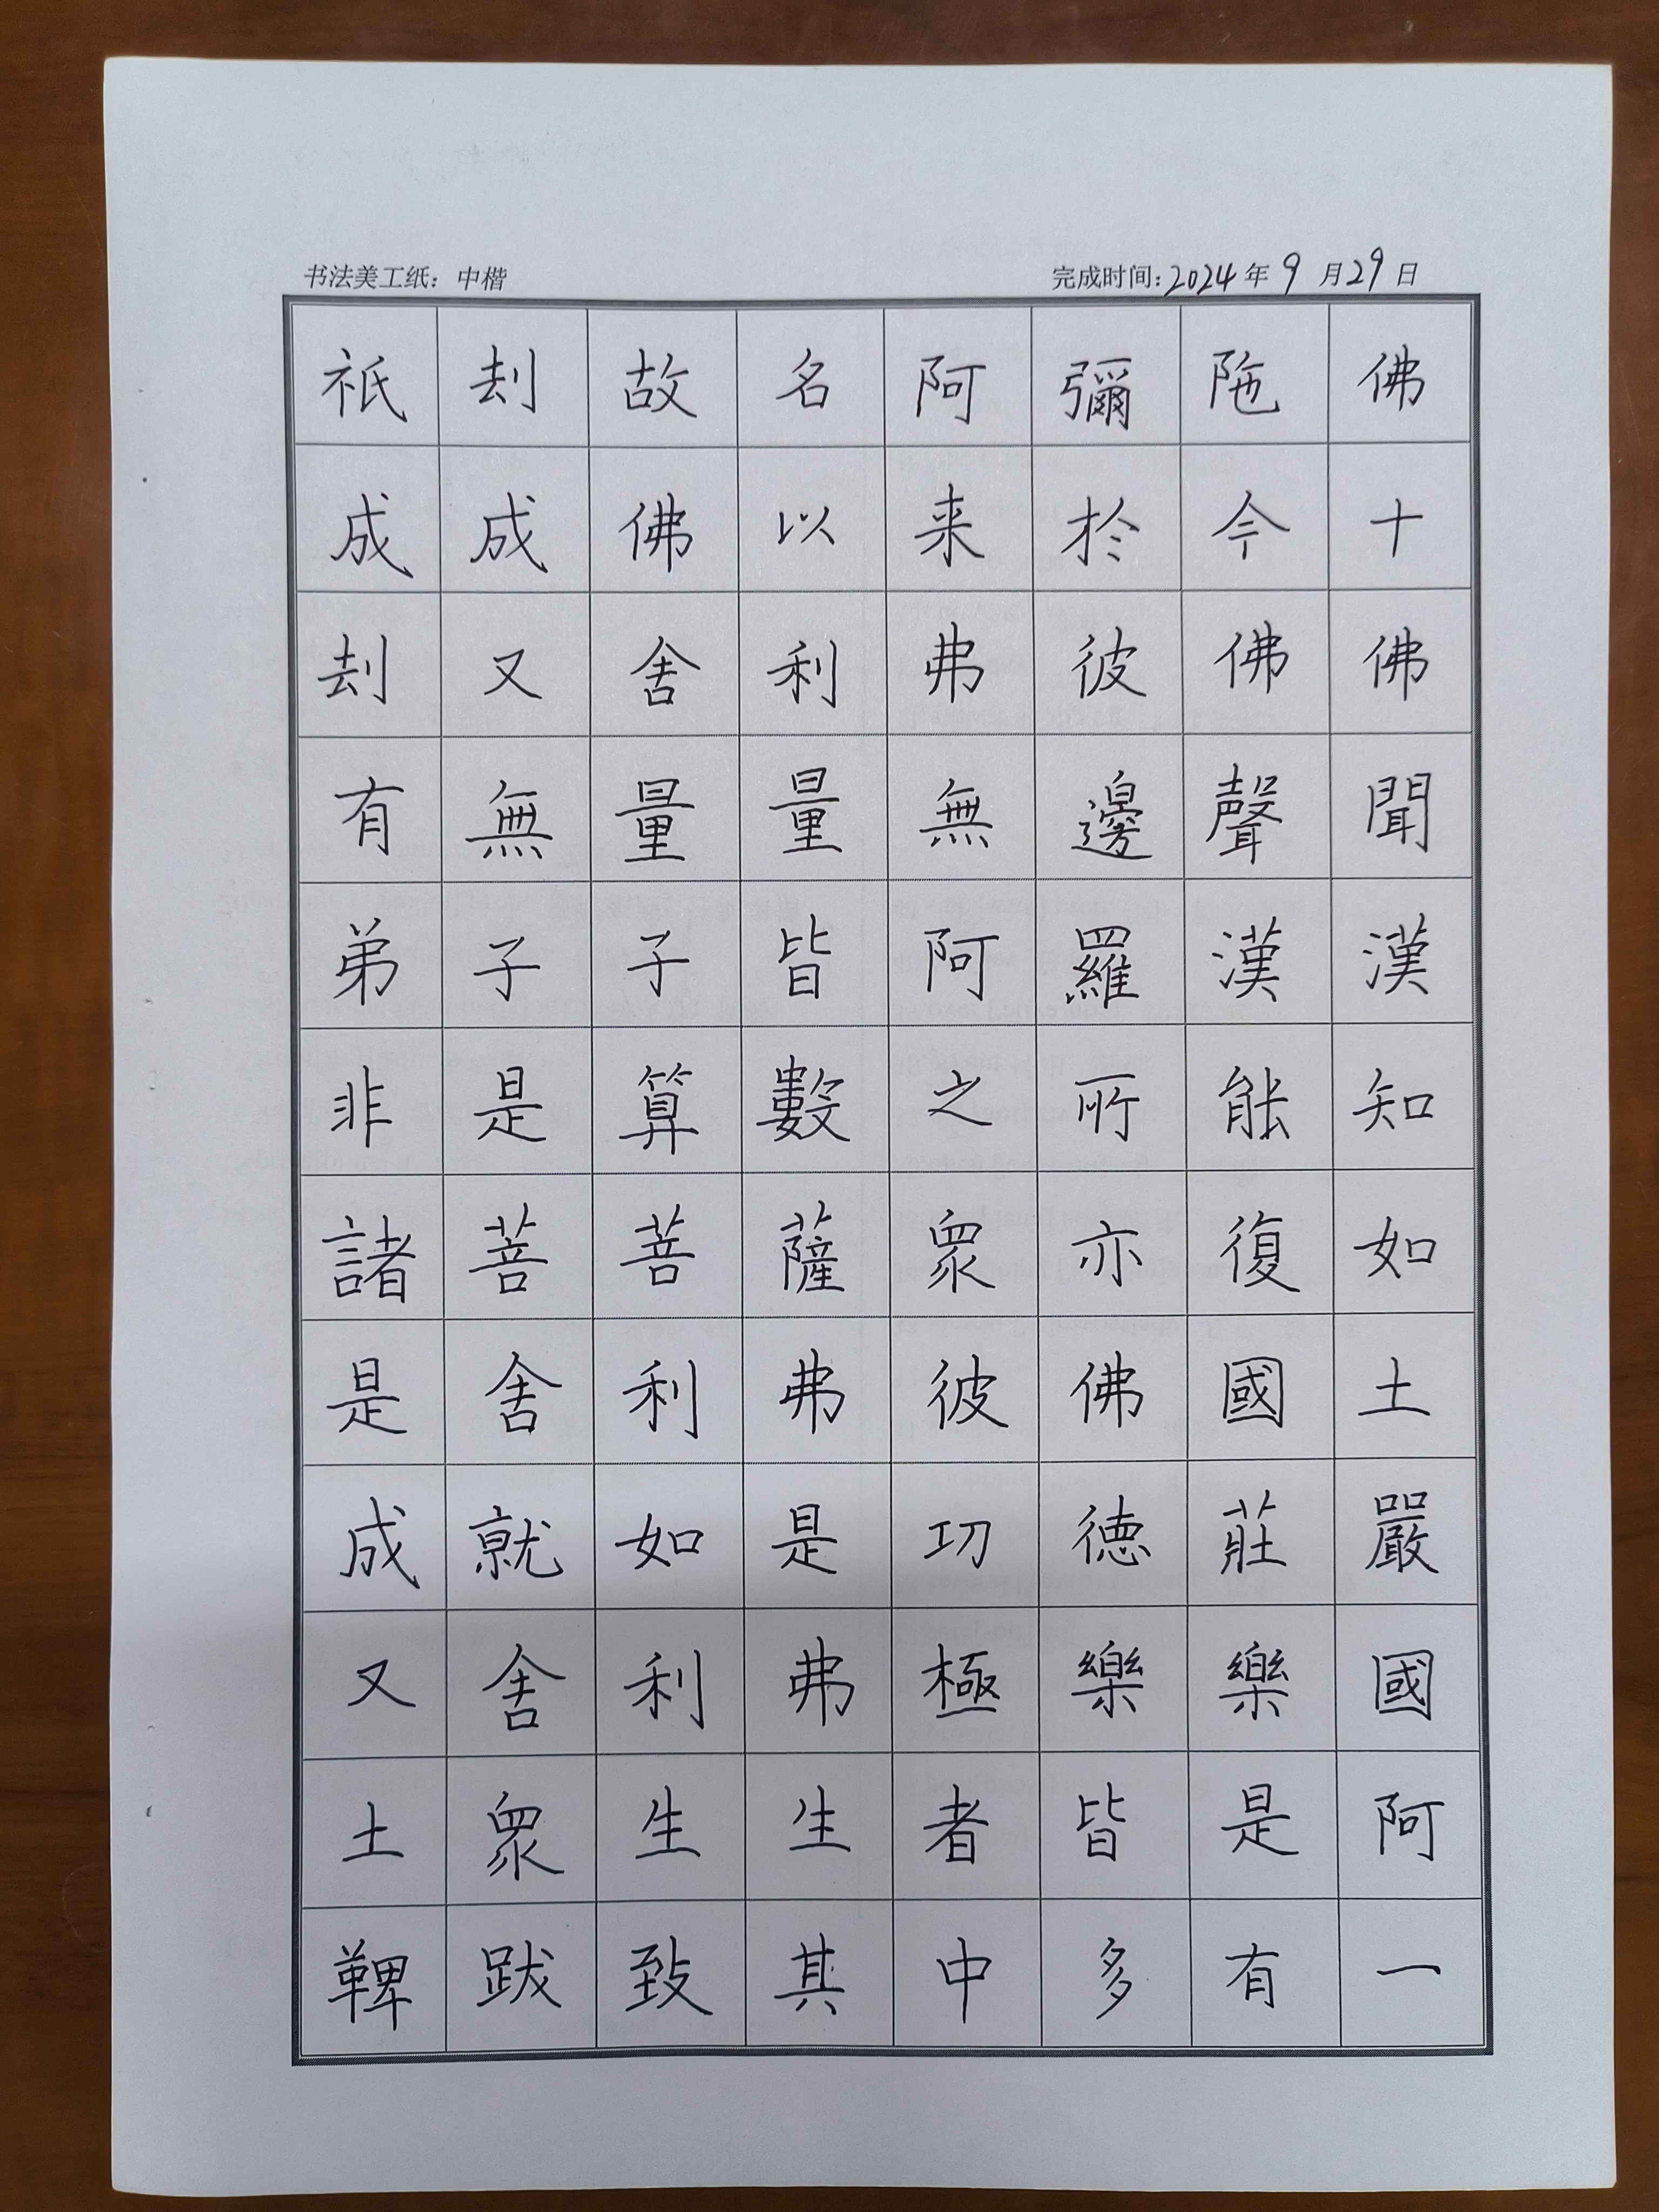 书法美工纸：中楷 完成时间：2024年9月29日
祇刦故名阿彌陁佛
成成佛以来於今十
刦又舍利弗彼佛佛
有無量量無邊聲聞
弟子子皆阿羅漢漢
非是算數之所能知
諸菩菩薩眾亦復如
是舍利弗彼佛國土
成就如是功德莊嚴
又舍利弗極樂樂國
土眾生生者皆是阿
鞞跋致其中多有一